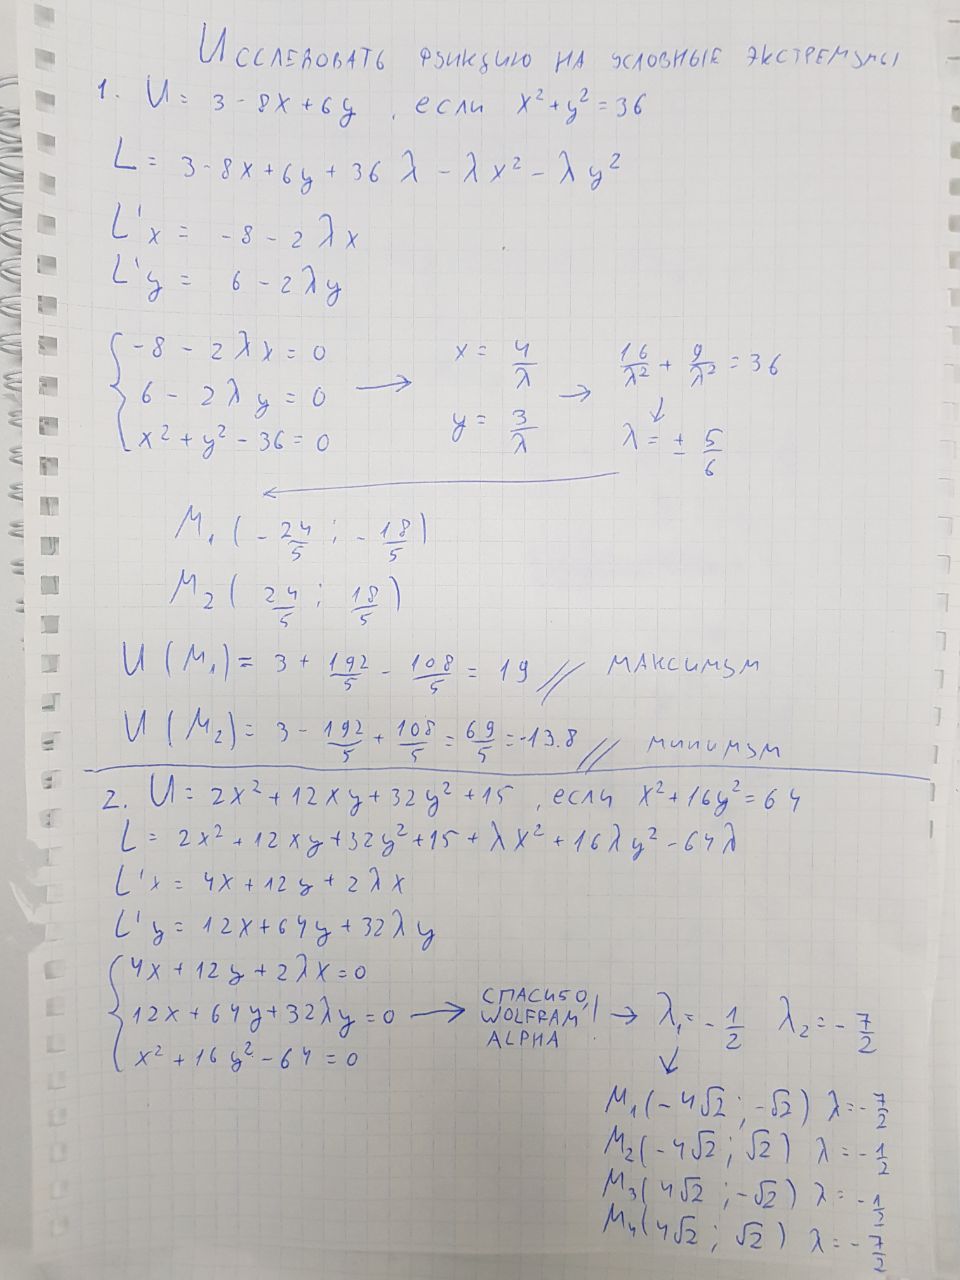 Исследовать функцию на условные экстремумы
1. U = 3 - 8x + 6y , если x² + y² = 36
L = 3 - 8x + 6y + 36 λ - λ x² - λ y²
L'x = -8 - 2 λ x
L'y = 6 - 2 λ y
-8 - 2 λ x = 0
6 - 2 λ y = 0
x² + y² - 36 = 0
→ x = 4/λ
y = 3/λ
→ 16/λ² + 9/λ² = 36
↓
λ = ± 5/6
M₁ ( - 24/5 ; - 18/5 )
M₂ ( 24/5 ; 18/5 )
U ( M₁ ) = 3 + 192/5 - 108/5 = 19 // максимум
U ( M₂ ) = 3 - 192/5 + 108/5 = 69/5 = -13.8 // минимум
2. U = 2x² + 12xy + 32y² + 15 , если x² + 16y² = 64
L = 2x² + 12xy + 32y² + 15 + λx² + 16λy² - 64λ
L'x = 4x + 12y + 2λx
L'y = 12x + 64y + 32λy
4x + 12y + 2λx = 0
12x + 64y + 32λy = 0
x² + 16y² - 64 = 0
→ СПАСИБО,
WOLFRAM
ALPHA !
→ λ₁ = - 1/2 λ₂ = - 7/2
↓
M₁ (- 4√2 ; -√2 ) λ = - 7/2
M₂ (- 4√2 ; √2 ) λ = - 1/2
M₃ ( 4√2 ; -√2 ) λ = - 1/2
M₄ ( 4√2 ; √2 ) λ = - 7/2